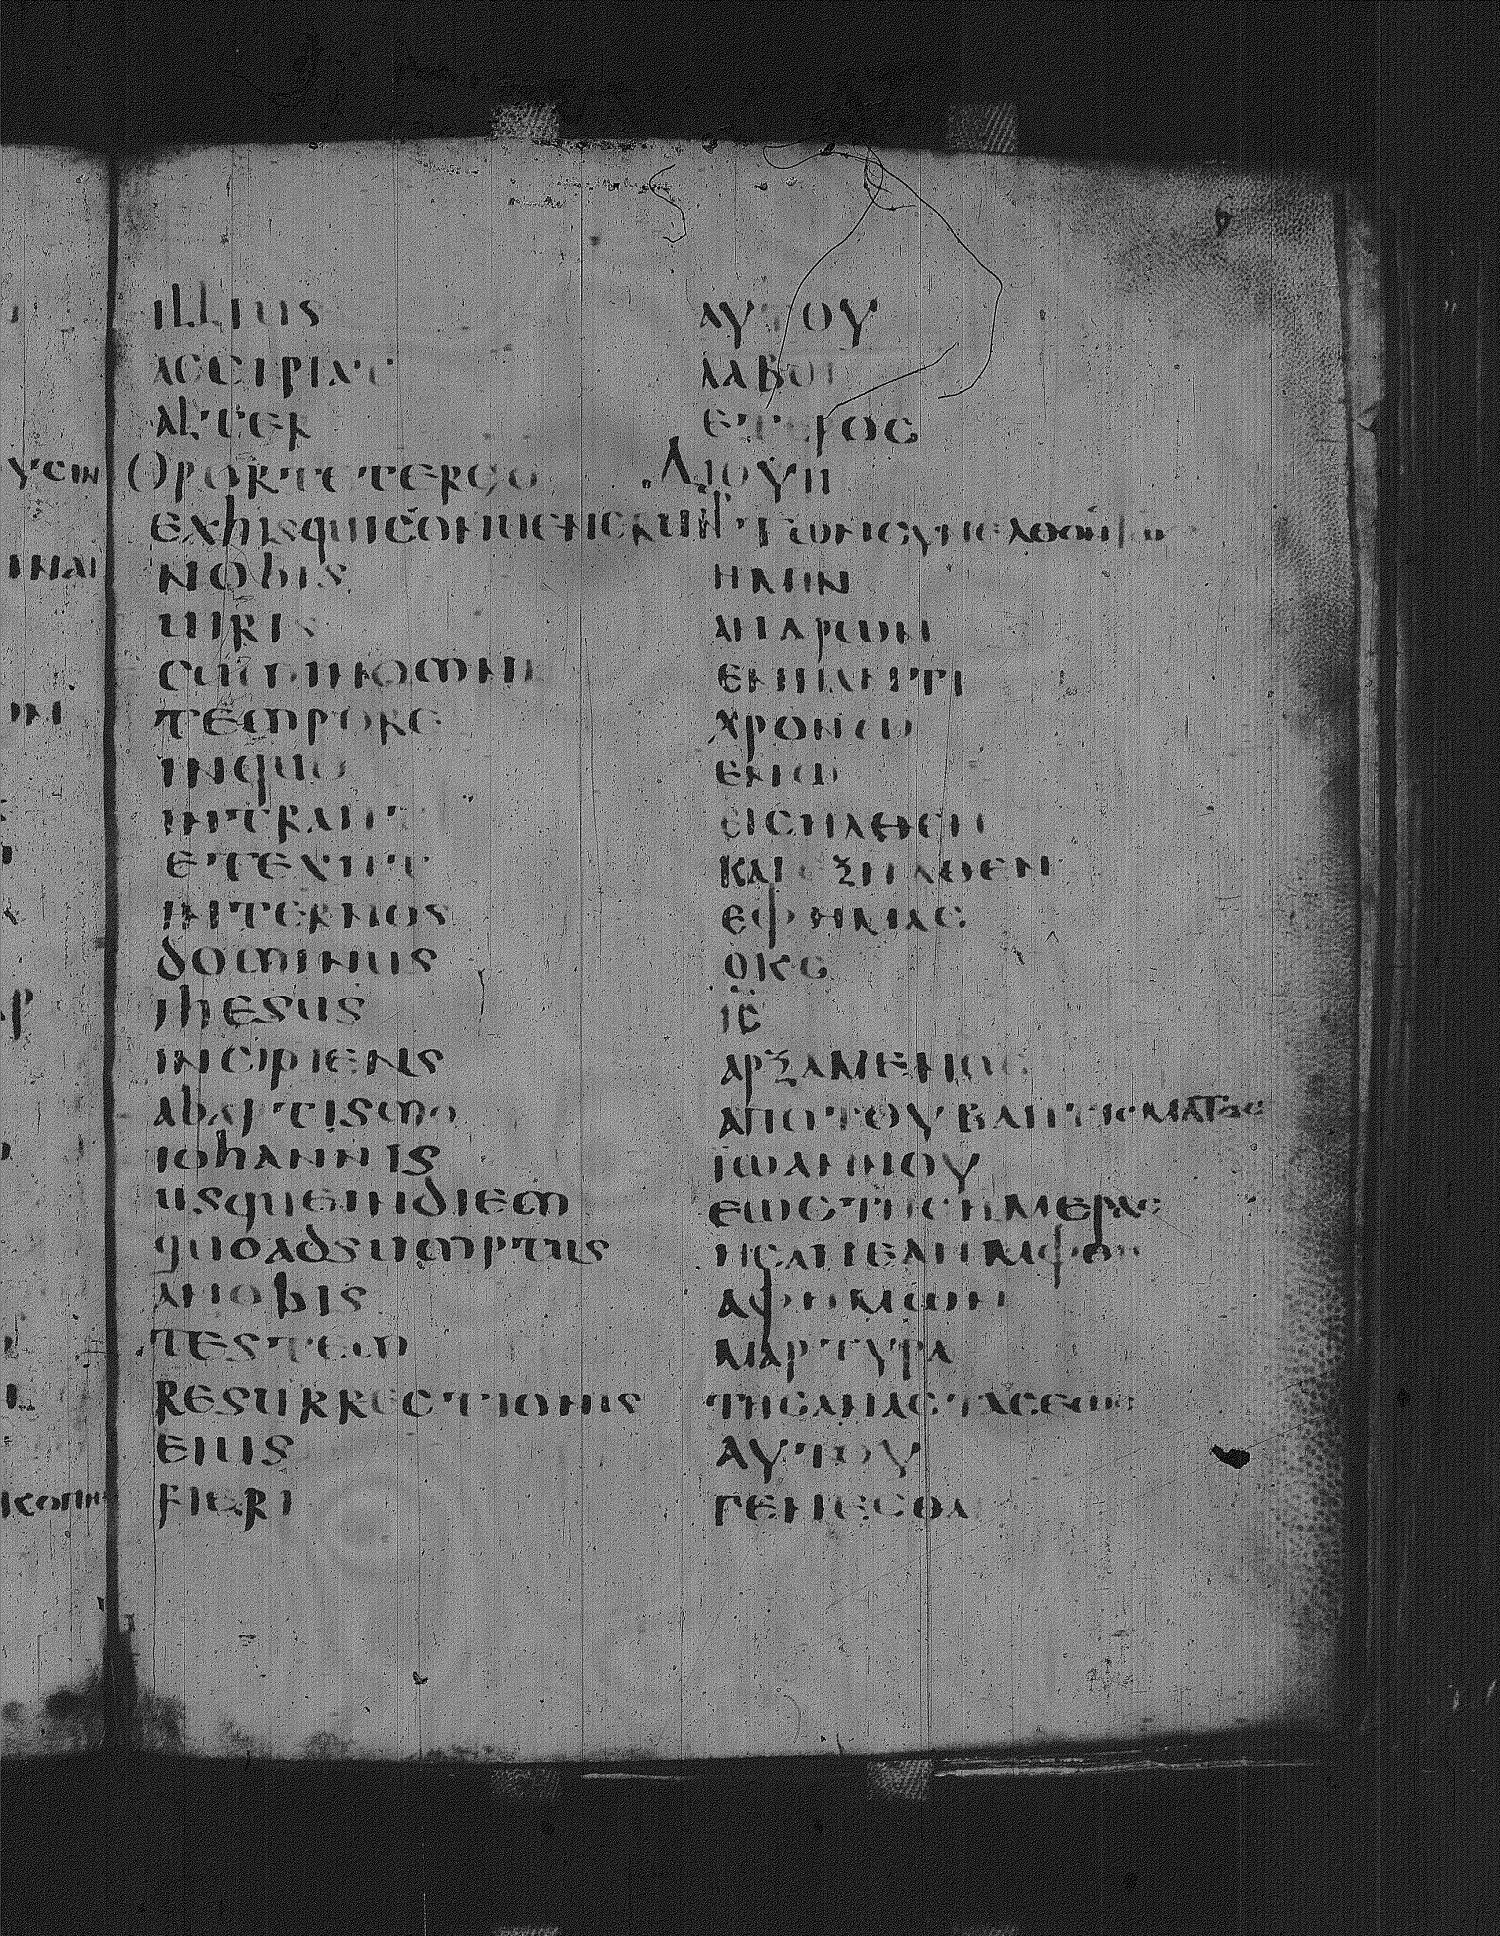 illius
accipiat
alter
Oportetergo
exhisquiconuenerunt
nobis
uiris
cuminomni
tempore
inquo
intrauit
etexiit
internos
dominus
ihesus
incipiens
abaptismo
iohannis
usqueindiem
quoadsumptus
anobis
testem
resurrectionis
eius
fieri
ΑΥΤΟΥ
ΛΑΒΟΙ
ΕΤΕΡΟC
ΔΙΟΥΝ
ΤΩΝCΥΝΕΛΘΟΝΤΩ
ΗΜΙΝ
ΑΝΔΡΩΝ
ΕΝΠΑΝΤΙ
ΧΡΟΝΩ
ΕΝΩ
ΕΙCΗΛΘΕΝ
ΚΑΙΕΞΗΛΘΕΝ
ΕΦΗΜΑC
ΟΚC
ΙC
ΑΡΞΑΜΕΝΟC
ΑΠΟΤΟΥΒΑΠΤΙCΜΑΤΟC
ΙΩΑΝΝΟΥ
ΕΩCΤΗCΗΜΕΡΑC
ΗCΑΝΕΛΗΜΦΘΗ
ΑΦΗΜΩΝ
ΜΑΡΤΥΡΑ
ΤΗCΑΝΑCΤΑCΕΩC
ΑΥΤΟΥ
ΓΕΝΕCΘΑΙ